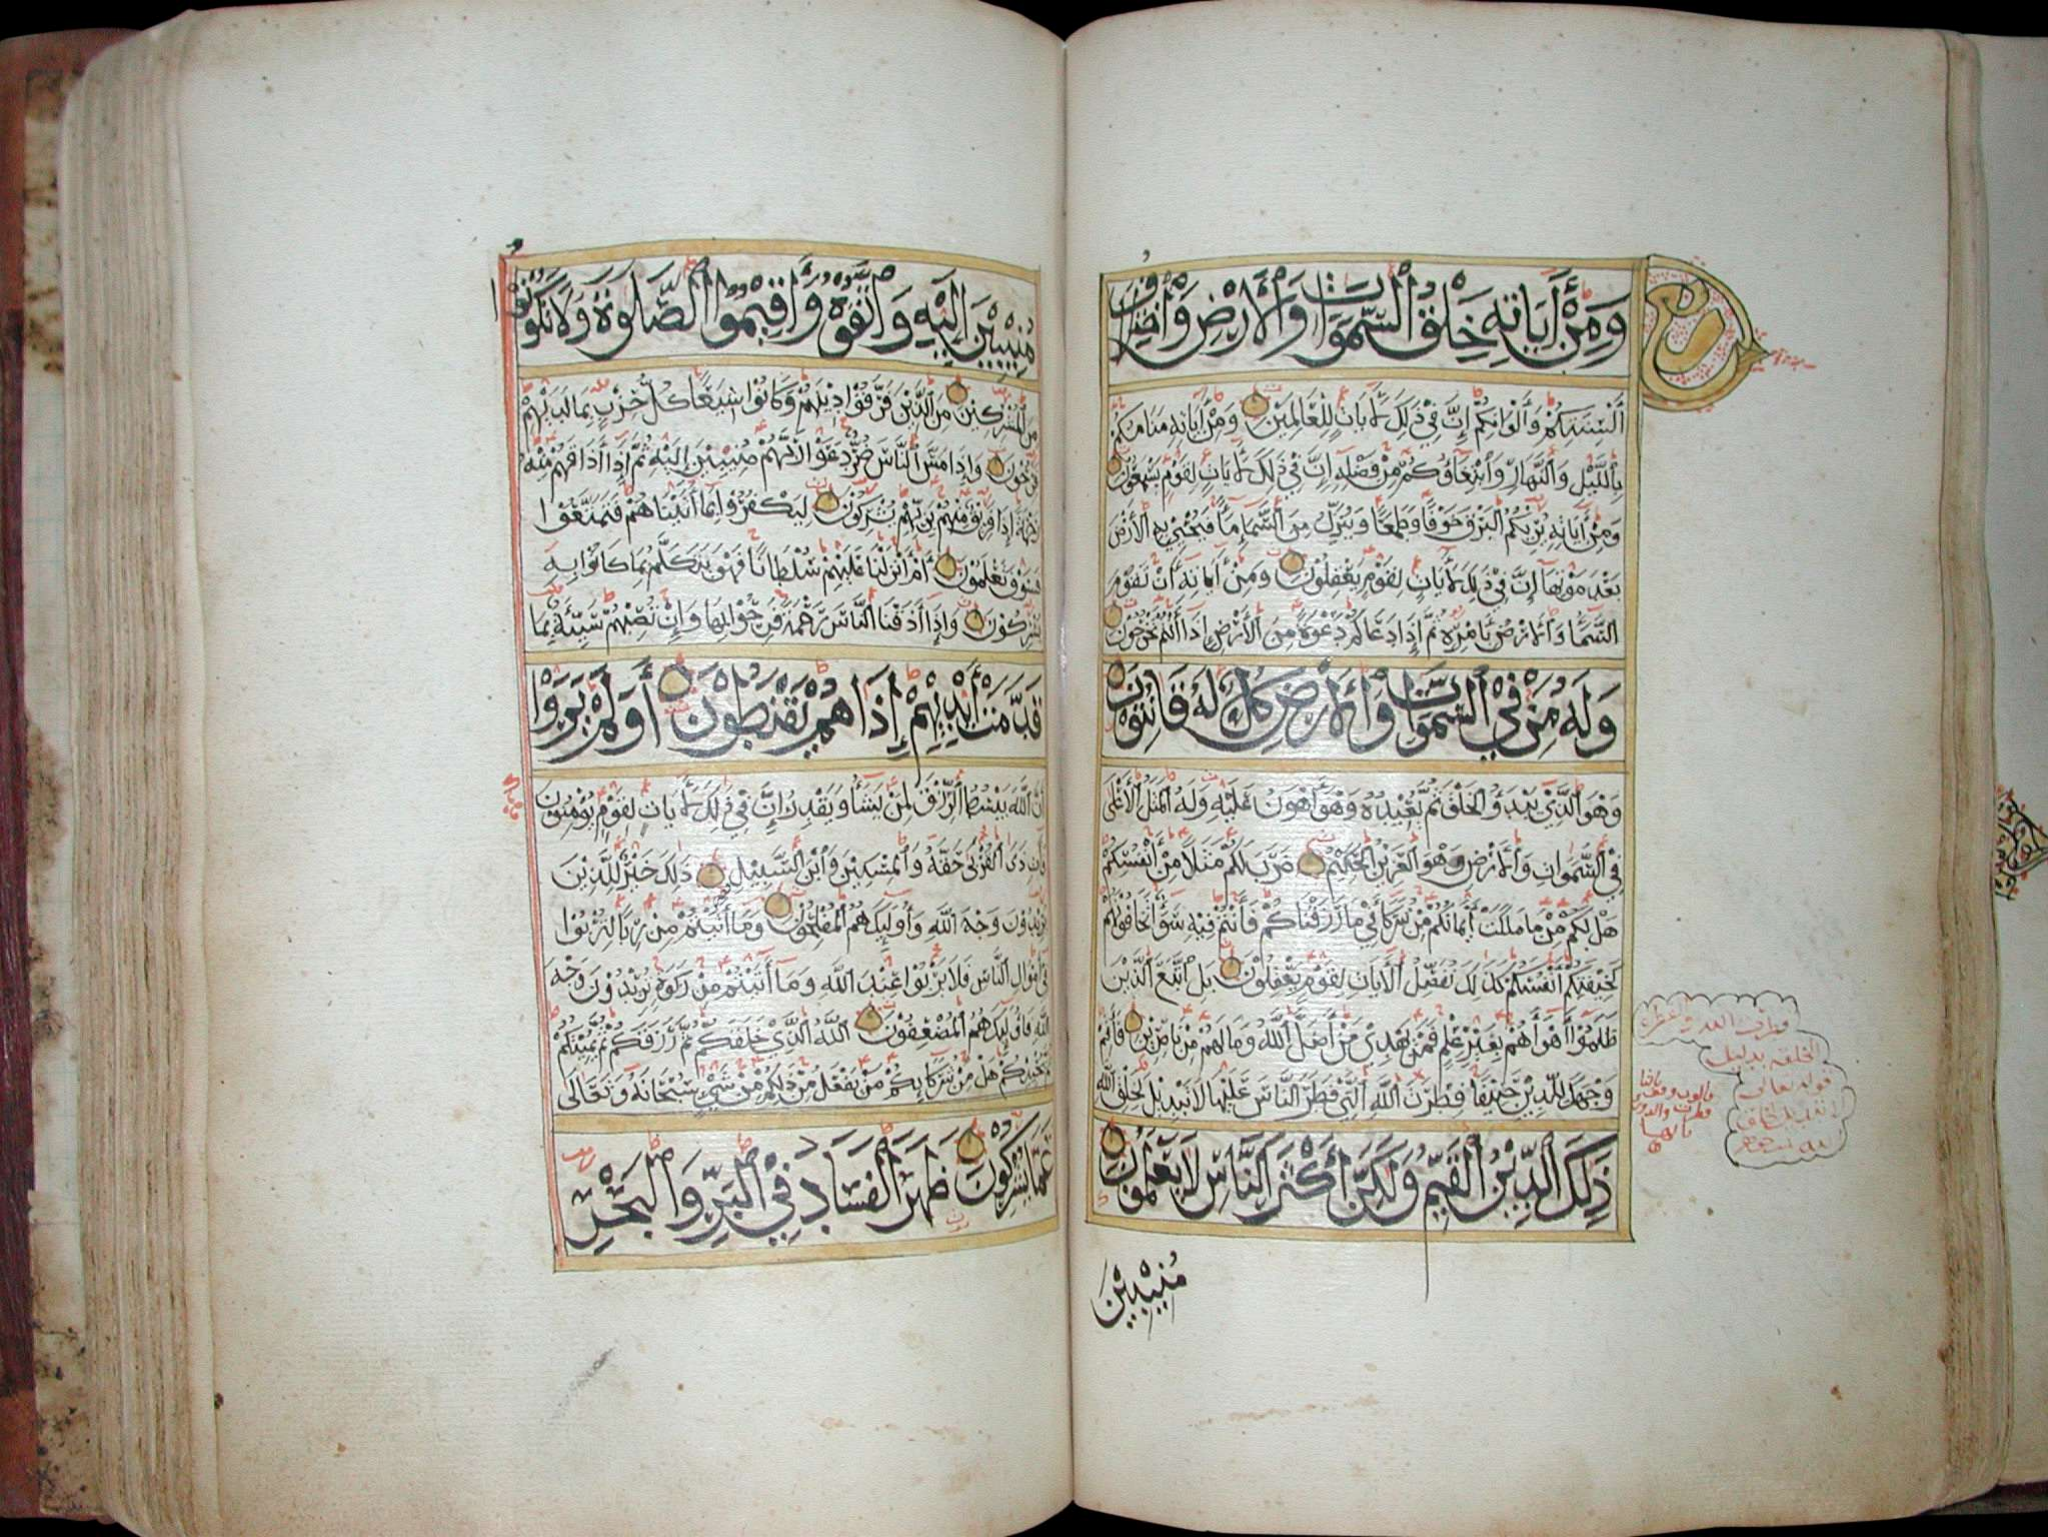 وَمِنْ أَيَاتِهِ خَلْقُ السَّمَوَاتِ وَالْأَرْضِ وَاخْتِلَافُ
أَلْسِنَتِكُمْ وَأَلْوَانِكُمْ إِنَّ فِي ذَلِكَ لَأَيَاتٍ لِلْعَالِمِيْنَ وَمِنْ أَيَاتِهِ مَنَامُكُمْ
بِاللَّيْلِ وَالنَّهَارِ وَابْتِغَاؤُكُمْ مِنْ فَضْلِهِ إِنَّ فِي ذَلِكَ لَأَيَاتٍ لِقَوْمٍ يَسْمَعُوْنَ
وَمِنْ أَيَاتِهِ يُرِيْكُمُ الْبَرْقَ خَوْفًا وَطَمَعًا وَيُنَزِّلُ مِنَ السَّمَاءِ مَاءً فَيُحْيِيْ بِهِ الْأَرْضَ
بَعْدَ مَوْتِهَا إِنَّ فِيْ ذَلِكَ لَأَيَاتٍ لِقَوْمٍ يَعْقِلُوْنَ وَمِنْ أَيَاتِهِ أَنْ تَقُوْمَ
السَّمَاءُ وَالْأَرْضُ بِأَمْرِهِ ثُمَّ إِذَا دَعَاكُمْ دَعْوَةً مِنَ الْأَرْضِ إِذَا أَنْتُمْ تَخْرُجُوْنَ
وَلَهُ مَنْ فِي السَّمَوَاتِ وَالْأَرْضِ كُلٌّ لَهُ قَانِتُوْنَ
وَهُوَ الَّذِيْ يَبْدَؤُ الْخَلْقَ ثُمَّ يُعِيْدُهُ وَهُوَ أَهْوَنُ عَلَيْهِ وَلَهُ الْمَثَلُ الْأَعْلَى
فِي السَّمَوَاتِ وَالْأَرْضِ وَهُوَ الْعَزِيْزُ الْحَكِيْمُ ضَرَبَ لَكُمْ مَثَلًا مِنْ أَنْفُسِكُمْ
هَلْ لَكُمْ مِنْ مَا مَلَكَتْ أَيْمَانُكُمْ مِنْ شُرَكَاءَ فِيْ مَا رَزَقْنَاكُمْ فَأَنْتُمْ فِيْهِ سَوَاءٌ تَخَافُوْنَهُمْ
كَخِيْفَتِكُمْ أَنْفُسَكُمْ كَذَلِكَ نُفَصِّلُ الْأَيَاتِ لِقَوْمٍ يَعْقِلُوْنَ بَلِ اتَّبَعَ الَّذِيْنَ
ظَلَمُوْا أَهْوَاءَهُمْ بِغَيْرِ عِلْمٍ فَمَنْ يَهْدِيْ مَنْ أَضَلَّ اللَّهُ وَمَا لَهُمْ مِنْ نَاصِرِيْنَ فَأَقِمْ
وَجْهَكَ لِلدِّيْنِ حَنِيْفًا فِطْرَتَ اللَّهِ الَّتِيْ فَطَرَ النَّاسَ عَلَيْهَا لَا تَبْدِيْلَ لِخَلْقِ اللَّهِ
ذَلِكَ الدِّيْنُ الْقَيِّمُ وَلَكِنَّ أَكْثَرَ النَّاسِ لَا يَعْلَمُوْنَ
مُنِيْبِيْنَ
مُنِيْبِيْنَ إِلَيْهِ وَاتَّقُوْهُ وَأَقِيْمُوا الصَّلَوٰةَ وَلَا تَكُوْنُوْا
مِنَ الْمُشْرِكِيْنَ مِنَ الَّذِيْنَ فَرَّقُوْا دِيْنَهُمْ وَكَانُوْا شِيَعًا كُلُّ حِزْبٍ بِمَا لَدَيْهِمْ
فَرِحُوْنَ وَإِذَا مَسَّ النَّاسَ ضُرٌّ دَعَوْا رَبَّهُمْ مُنِيْبِيْنَ إِلَيْهِ ثُمَّ إِذَا أَذَاقَهُمْ مِنْهُ
رَحْمَةً إِذَا فَرِيْقٌ مِنْهُمْ بِرَبِّهِمْ يُشْرِكُوْنَ لِيَكْفُرُوْا بِمَا أَتَيْنَاهُمْ فَتَمَتَّعُوْا
فَسَوْفَ تَعْلَمُوْنَ أَمْ أَنْزَلْنَا عَلَيْهِمْ سُلْطَانًا فَهُوَ يَتَكَلَّمُ بِمَا كَانُوْا بِهِ
يُشْرِكُوْنَ وَإِذَا أَذَقْنَا النَّاسَ رَحْمَةً فَرِحُوْا بِهَا وَإِنْ تُصِبْهُمْ سَيِّئَةٌ بِمَا
قَدَّمَتْ أَيْدِيْهِمْ إِذَا هُمْ يَقْنَطُوْنَ أَوَلَمْ يَرَوْا
أَنَّ اللَّهَ يَبْسُطُ الرِّزْقَ لِمَنْ يَشَاءُ وَيَقْدِرُ إِنَّ فِيْ ذَلِكَ لَأَيَاتٍ لِقَوْمٍ يُؤْمِنُوْنَ
فَأْتِ ذَى الْقُرْبَى حَقَّهُ وَالْمِسْكِيْنَ وَابْنَ السَّبِيْلِ ذَلِكَ خَيْرٌ لِلَّذِيْنَ
يُرِيْدُوْنَ وَجْهَ اللَّهِ وَأُولَئِكَ هُمُ الْمُفْلِحُوْنَ وَمَا أَتَيْتُمْ مِنْ رِبًا لِتُرْبُوْا
فِيْ أَمْوَالِ النَّاسِ فَلَا يَرْبُوْا عِنْدَ اللَّهِ وَمَا أَتَيْتُمْ مِنْ زَكَوٰةٍ تُرِيْدُوْنَ وَجْهَ
اللَّهِ فَأُولَئِكَ هُمُ الْمُضْعِفُوْنَ اللَّهُ الَّذِيْ خَلَقَكُمْ ثُمَّ رَزَقَكُمْ ثُمَّ يُمِيْتُكُمْ
ثُمَّ يُحْيِيْكُمْ هَلْ مِنْ شُرَكَائِكُمْ مَنْ يَفْعَلُ مِنْ ذَلِكُمْ مِنْ شَيْءٍ سُبْحَانَهُ وَتَعَالَى
عَمَّا يُشْرِكُوْنَ ظَهَرَ الْفَسَادُ فِي الْبَرِّ وَالْبَحْرِ